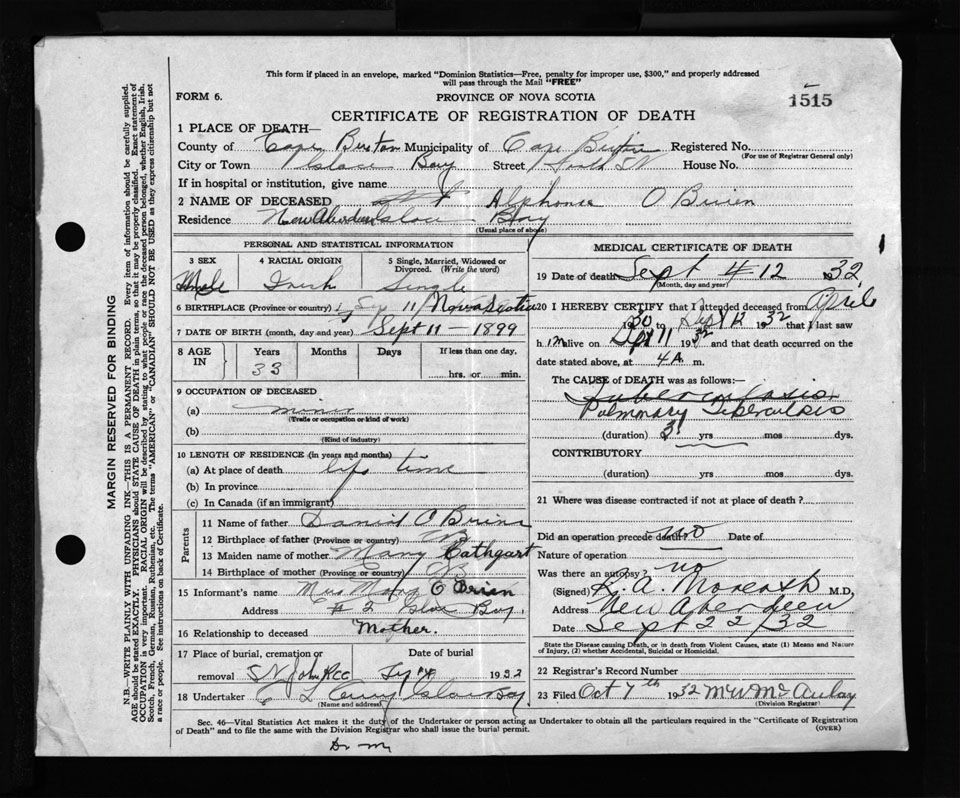 This form if placed in an envelope, marked "Dominion Statistics—Free, penalty for improper use, $300," and properly addressed
will pass through the Mail "FREE"
FORM 6.
PROVINCE OF NOVA SCOTIA
1515
CERTIFICATE OF REGISTRATION OF DEATH
1 PLACE OF DEATH—
County of Cape Breton Municipality of Cape Breton Registered No.
(For use of Registrar General only)
City or Town Glace Bay Street House No.
If in hospital or institution, give name
2 NAME OF DECEASED Alphonse O Brien
Residence New Aberdeen Glace Bay
(Usual place of above)
PERSONAL AND STATISTICAL INFORMATION
3 SEX
Male
4 RACIAL ORIGIN
Irish
5 Single, Married, Widowed or Divorced. (Write the word)
Single
6 BIRTHPLACE (Province or country) Nova Scotia
7 DATE OF BIRTH (month, day and year) Sept 11 - 1899
8 AGE IN
Years Months Days If less than one day.
33 hrs. or min.
9 OCCUPATION OF DECEASED
(a) miner
(Trade or occupation or kind of work)
(b)
(Kind of industry)
10 LENGTH OF RESIDENCE (in years and months)
(a) At place of death life time
(b) In province
(c) In Canada (if an immigrant)
Parents
11 Name of father Daniel O Brien
12 Birthplace of father (Province or country)
13 Maiden name of mother Mary Cathgart
14 Birthplace of mother (Province or country)
15 Informant's name Mrs Mary O Brien
Address # 2 Glace Bay.
16 Relationship to deceased Mother.
17 Place of burial, cremation or Date of burial
removal 1932
18 Undertaker Glace Bay
(Name and address)
MEDICAL CERTIFICATE OF DEATH
19 Date of death Sept 12 1932
(Month, day and year)
20 I HEREBY CERTIFY that I attended deceased from April
1930 to Sept 12 1932 that I last saw
him alive on Sept 11 1932 and that death occurred on the
date stated above, at 4 A. m.
The CAUSE of DEATH was as follows:—
Pulmonary Tuberculosis
(duration) 3 yrs mos dys.
CONTRIBUTORY
(duration) yrs mos dys.
21 Where was disease contracted if not at place of death?
Did an operation precede death? No Date of
Nature of operation
Was there an autopsy? no
(Signed) M.D.,
Address New Aberdeen
Date Sept 22/32
State the Disease causing Death, or in death from Violent Causes, state (1) Means and Nature
of Injury, (2) whether Accidental, Suicidal or Homicidal.
22 Registrar's Record Number
23 Filed Oct 7th 1932 M W McAulay
(Division Registrar)
Sec. 46—Vital Statistics Act makes it the duty of the Undertaker or person acting as Undertaker to obtain all the particulars required in the "Certificate of Registration
of Death" and to file the same with the Division Registrar who shall issue the burial permit.
(OVER)
MARGIN RESERVED FOR BINDING
N.B.—WRITE PLAINLY WITH UNFADING INK—THIS IS A PERMANENT RECORD. Every item of information should be carefully supplied.
AGE should be stated EXACTLY. PHYSICIANS should STATE CAUSE OF DEATH in plain terms, so that it may be properly classified. Exact statement of
OCCUPATION is very important. RACIAL ORIGIN will be described by stating to what people or race the deceased person belonged, whether English, Irish,
Scotch, French, German, Russian, Ruthenian, etc. The terms "AMERICAN" or "CANADIAN" SHOULD NOT BE USED as they express citizenship but not
a race or people. See instructions on back of Certificate.